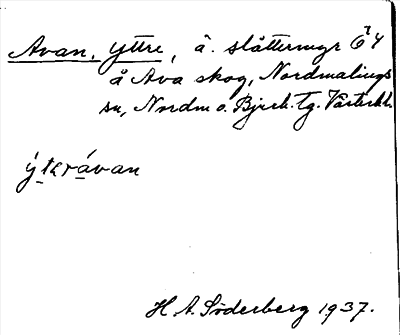 Avan, Yttre, å. slåttermyr Ö 4
å Ava skog, Nordmalings
sn, Nordm o. Bjurh. tg. Västerb.
ýtərávan
H. A. Söderberg 1937.